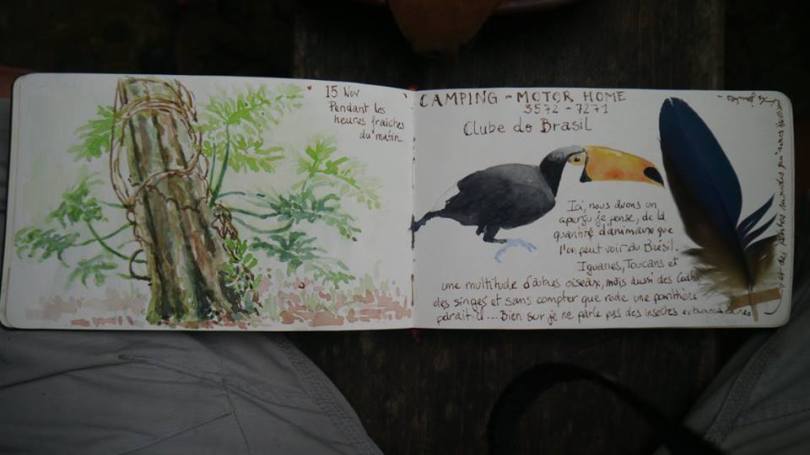 15 Nov
Pendant les
heures fraiches
du matin
CAMPING - MOTOR HOME
3572 - 7271
Clube do Brasil
Ici, nous avons un
aperçu je pense, de la
quantité d'animaux que
l'on peut voir au Brésil.
Iguanes, Toucans et
une multitude d'autres oiseaux, mais aussi des
des singes et sans compter que rode une panthère
parait-il.... Bien sur je ne parle pas des insectes